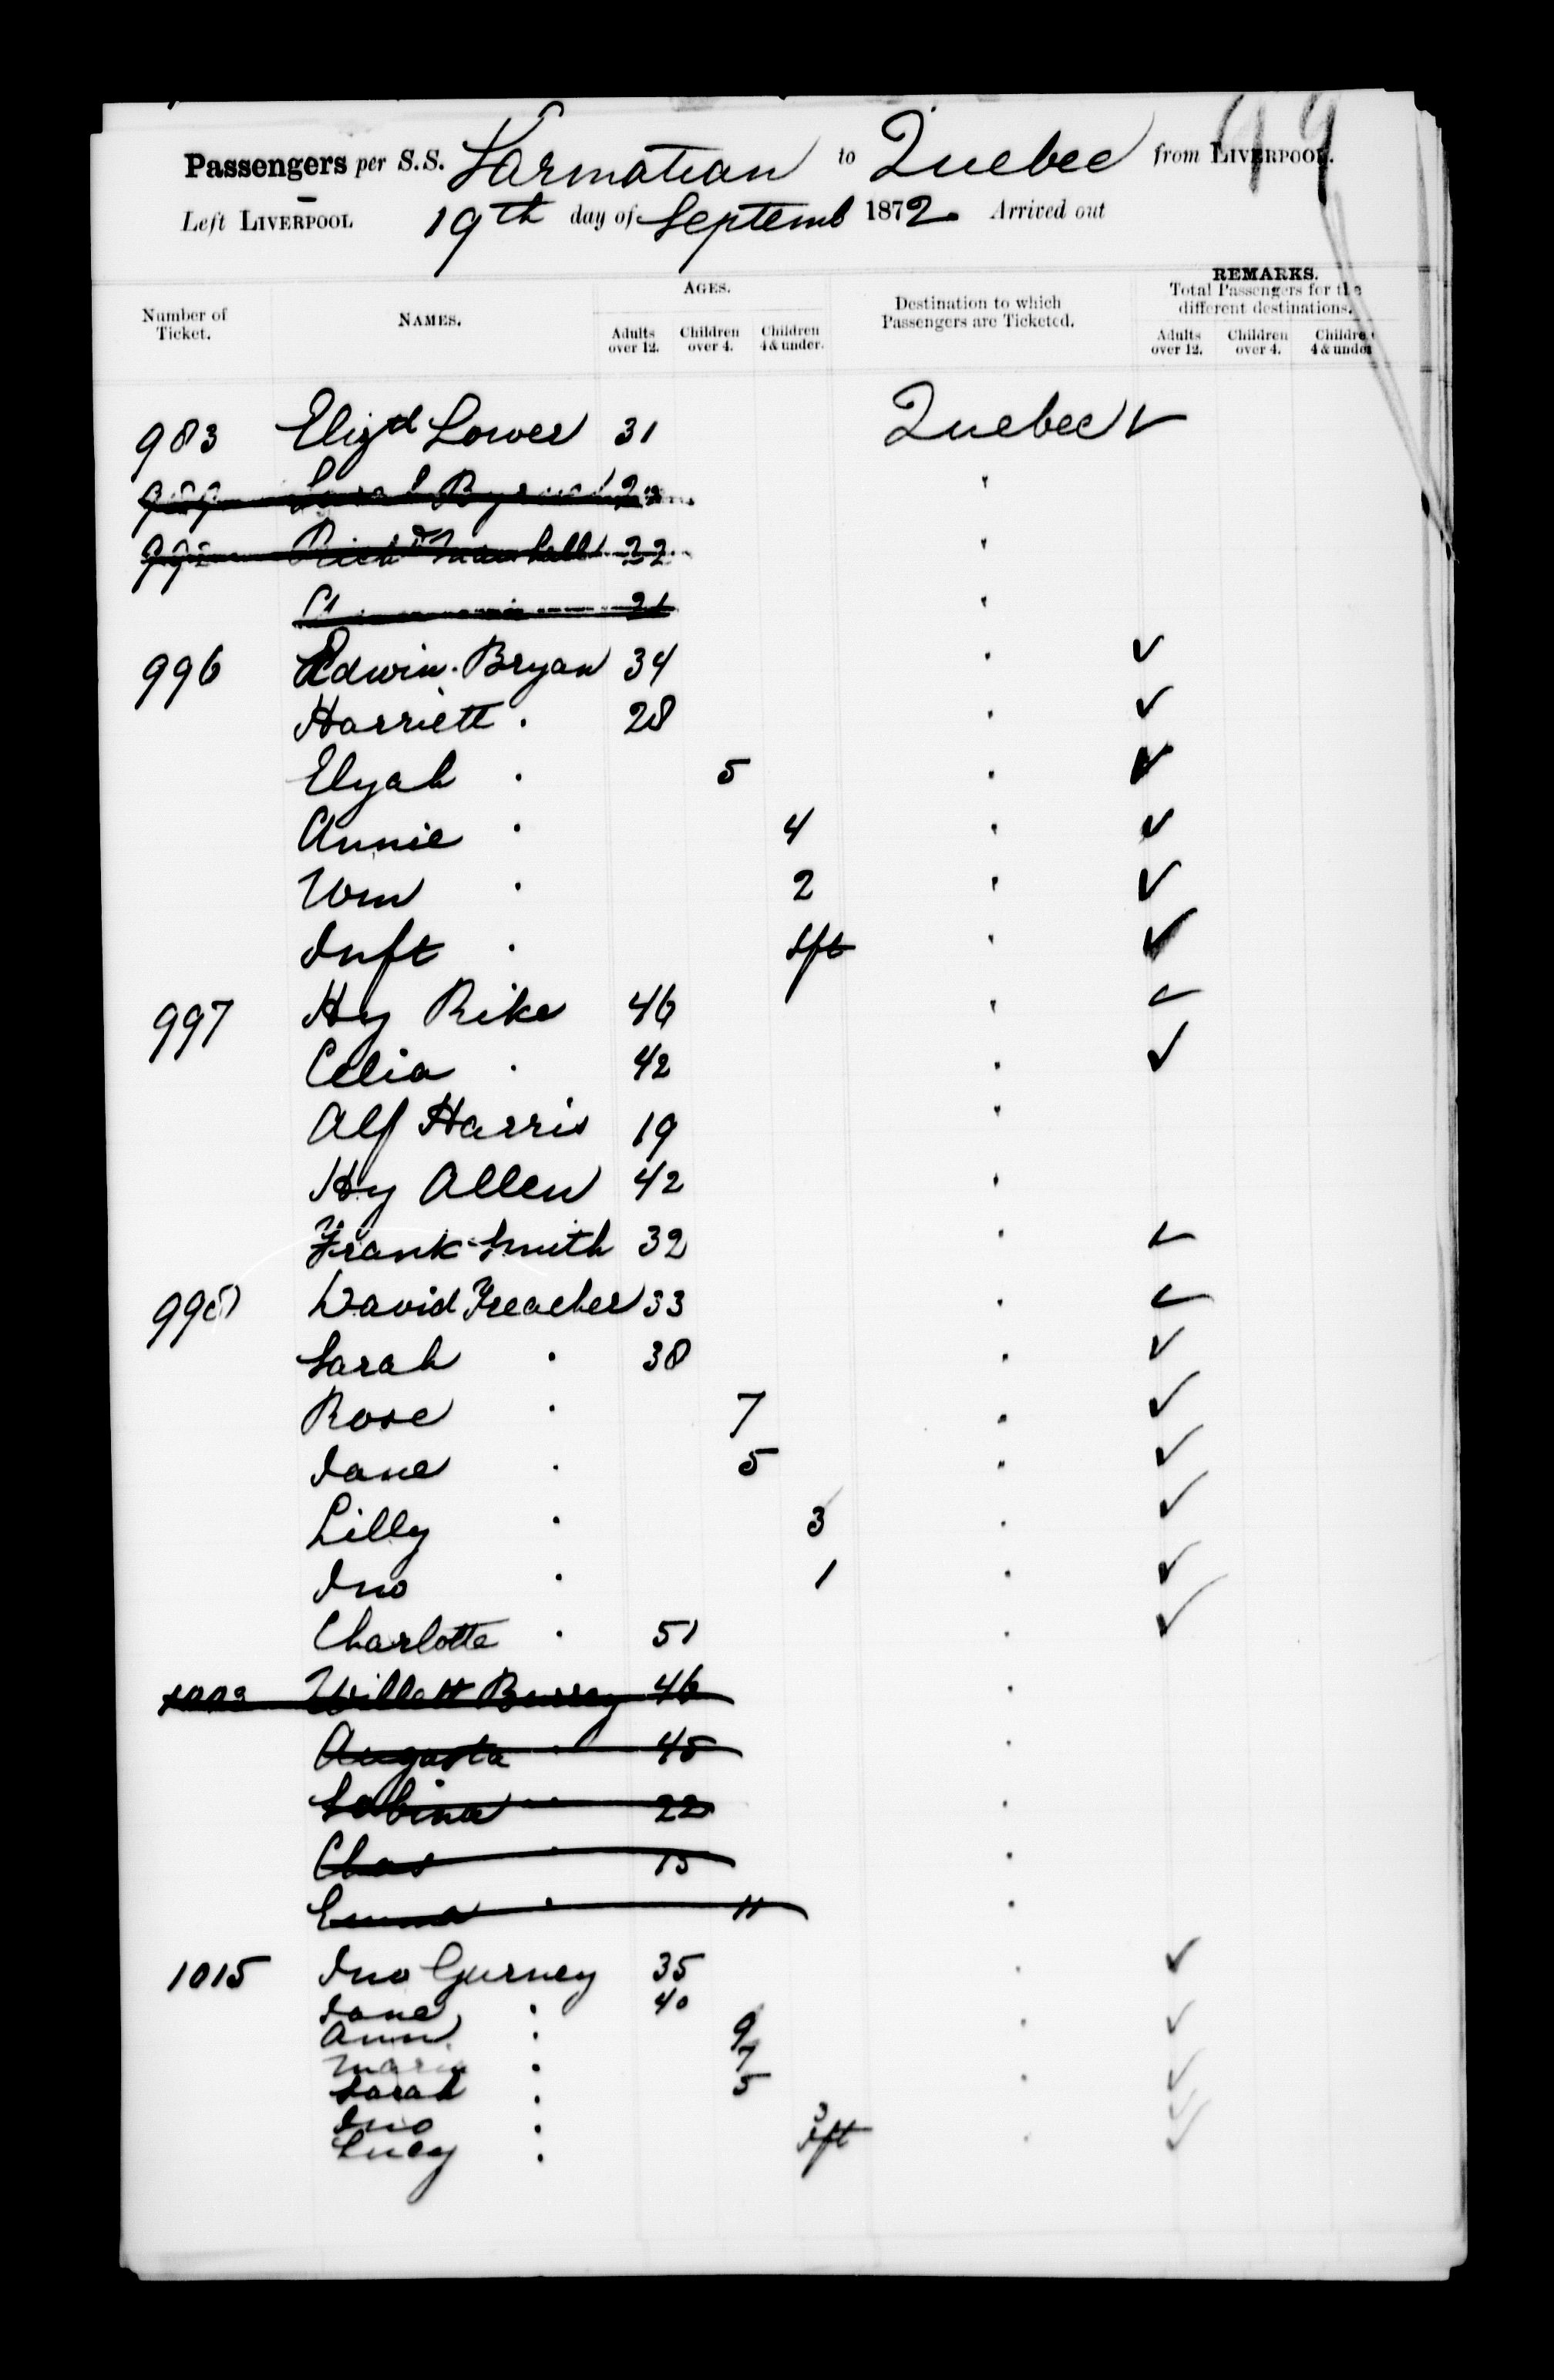 99
Passengers per S.S. Sarmatian to Quebec from LIVERPOOL.
Left LIVERPOOL 19th day of Septemb 1872 Arrived out
Number of Ticket. NAMES. AGES. Destination to which Passengers are Ticketed. REMARKS. Total Passengers for the different destinations.
Adults over 12. Children over 4. Children 4 & under. Adults over 12. Children over 4. Children 4 & under
983 Elizth Lower 31 Quebec ✓
989 Sarah Byrne 22 "
992 Richd 22 "
21 "
996 Edwin Bryan 34 " ✓
Harriett " 28 " ✓
Elijah " 5 " ✓
Annie " 4 " ✓
Wm " 2 " ✓
Inft " Ift " ✓
997 Hy Rike 46 " ✓
Celia " 42 " ✓
Alf Harris 19 "
Hy Allen 42 "
Frank Smith 32 " ✓
998 David Treacher 33 " ✓
Sarah " 38 " ✓
Rose " 7 " ✓
Jane " 5 " ✓
Lilly " 3 " ✓
Jno " 1 " ✓
Charlotte " 51 " ✓
1003 Willett 46 "
Augusta " 45 "
Sabina " 22 "
Chas " 15 "
Emma " 11 "
1015 Jno Gurney 35 " ✓
Jane " 40 " ✓
Ann " 9
Maria " 7 " ✓
Sarah " 5 ✓
Jno " 3 ✓
Lucy " Ift " ✓